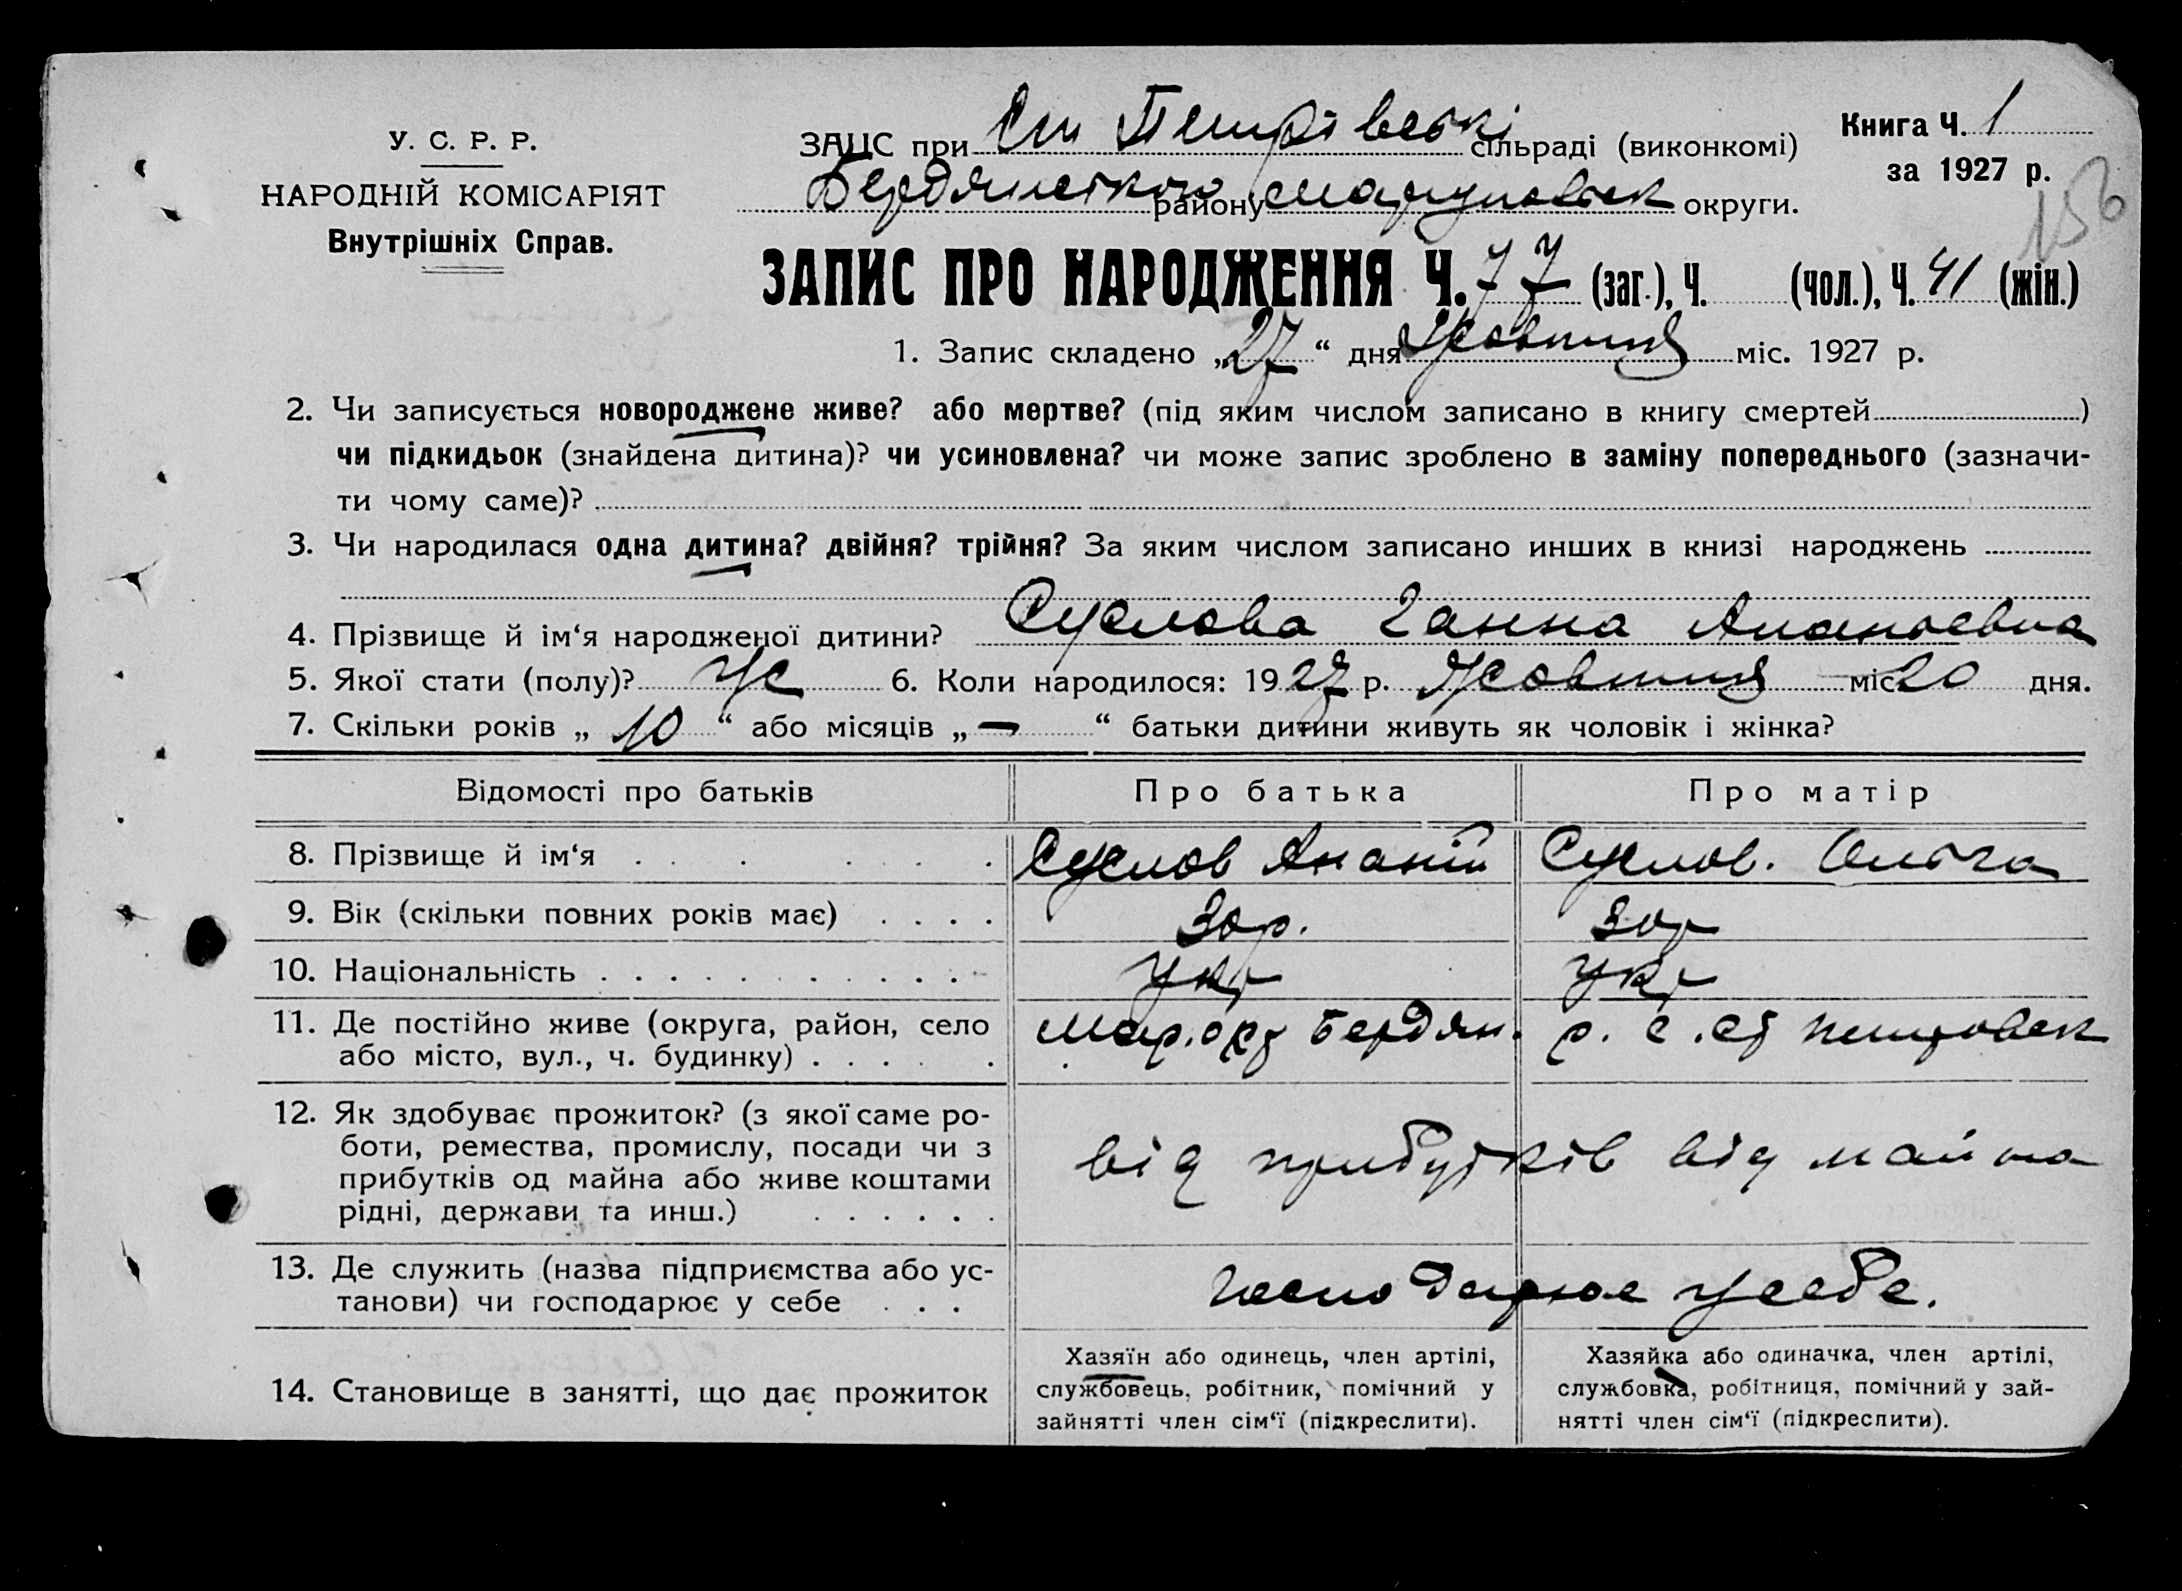 У. С. Р. Р.
НАРОДНІЙ КОМІСАРІЯТ
Внутрішніх Справ.
ЗАГС при Ст Петрівські сільраді (виконкомі)
Бердянского району Маруповск округи.
Книга Ч. 1
за 1927 р.
156
ЗАПИС ПРО НАРОДЖЕННЯ Ч. 77 (заг.), Ч. (чол.), Ч. 41 (жін.)
1. Запис складено „27“ дня Жовтня міс. 1927 р.
2. Чи записується новороджене живе? або мертве? (під яким числом записано в книгу смертей )
чи підкидьок (знайдена дитина)? чи усиновлена? чи може запис зроблено в заміну попереднього (зазначи-
ти чому саме)?
3. Чи народилася одна дитина? двійня? трійня? За яким числом записано инших в книзі народжень
4. Прізвище й ім‘я народженої дитини? Суслова Ганна Ананьевна
5. Якої стати (полу)? Ж 6. Коли народилося: 1927 р. Жовтня міс 20 дня.
7. Скільки років „ 10 “ або місяців „ — “ батьки дитини живуть як чоловік і жінка?
Відомості про батьків Про батька Про матір
8. Прізвище й ім‘я Суслов Ананій Суслов. Ольга
9. Вік (скільки повних років має) 30р. 30р
10. Національність укр укр
11. Де постійно живе (округа, район, село
або місто, вул., ч. будинку) Мар. окр Бердян. р. с. ст петровск
12. Як здобуває прожиток? (з якої саме ро-
боти, ремества, промислу, посади чи з
прибутків од майна або живе коштами
рідні, держави та инш.) від прибутків від майна
13. Де служить (назва підприємства або ус-
танови) чи господарює у себе господарює усебе.
14. Становище в занятті, що дає прожиток
Хазяїн або одинець, член артілі,
службовець, робітник, помічний у
зайнятті член сім‘ї (підкреслити).
Хазяйка або одиначка, член артілі,
службовка, робітниця, помічний у зай-
нятті член сім‘ї (підкреслити).